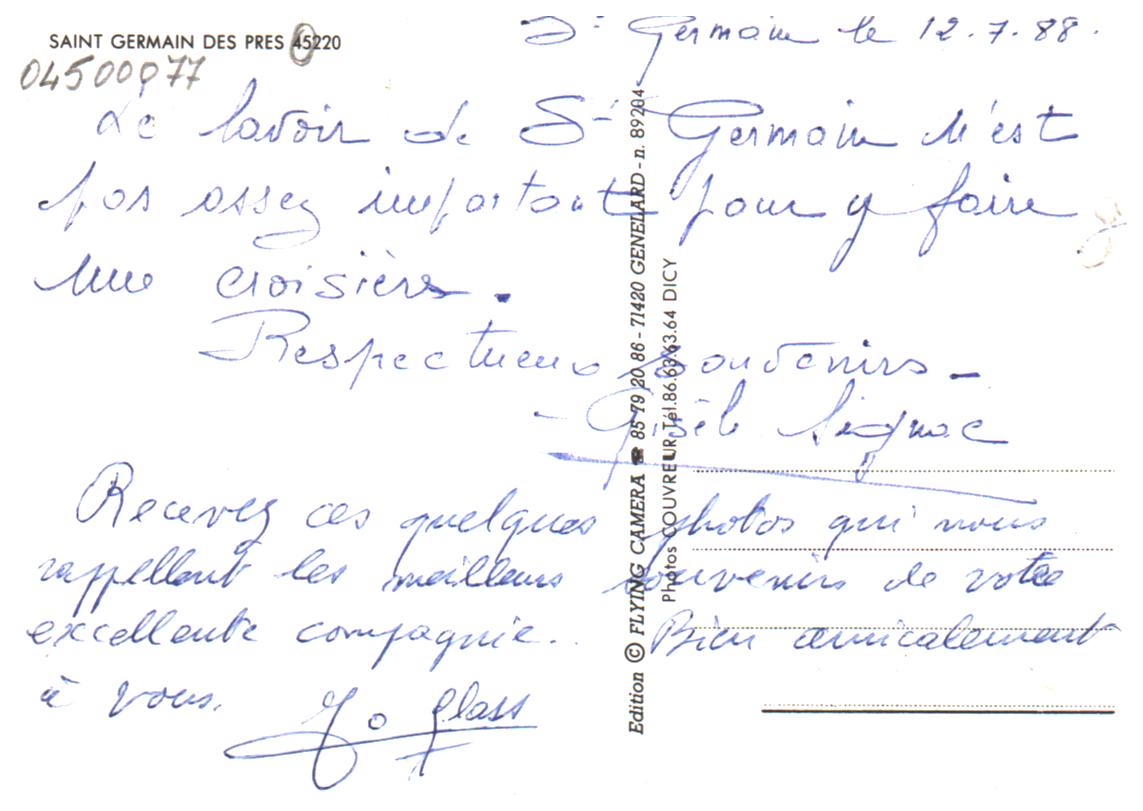 SAINT GERMAIN DES PRES 45220
04500077
St Germain le 12.7.88.
Le lavoir de St Germain n'est
pas assez important pour y faire
une croisière.
Respectueux souvenirs _
Gisèle Signac
Recevez ces quelques photos qui nous
rappellent les meilleurs souvenirs de votre
excellente compagnie.. Bien amicalement
à vous.
Jo Glass
Edition © FLYING CAMERA ☎ 85 79 20 86 - 71420 GENELARD - n. 89204
Photos COUVREUR Tél.86.63.63.64 DICY